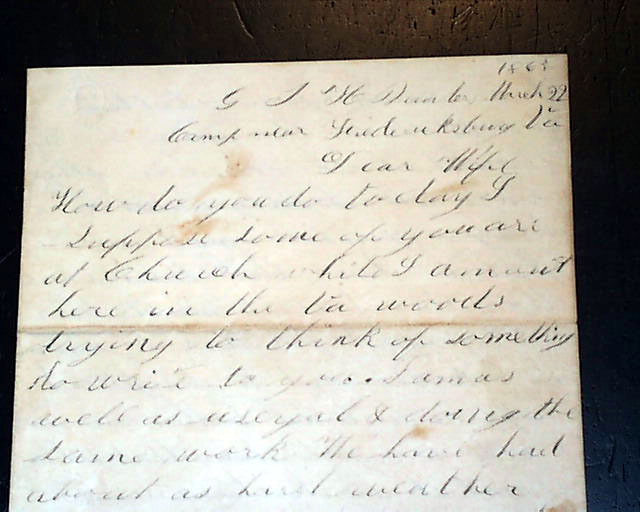 186
March 22
Camp near Fredericksburg Va
Dear Wife
How do you do today I
suppose some of you are
at Church while I am out
here in the Va woods
trying to think of something
to write to you. I am as
well as useyal & doing the
same work We have had
about as hard weather